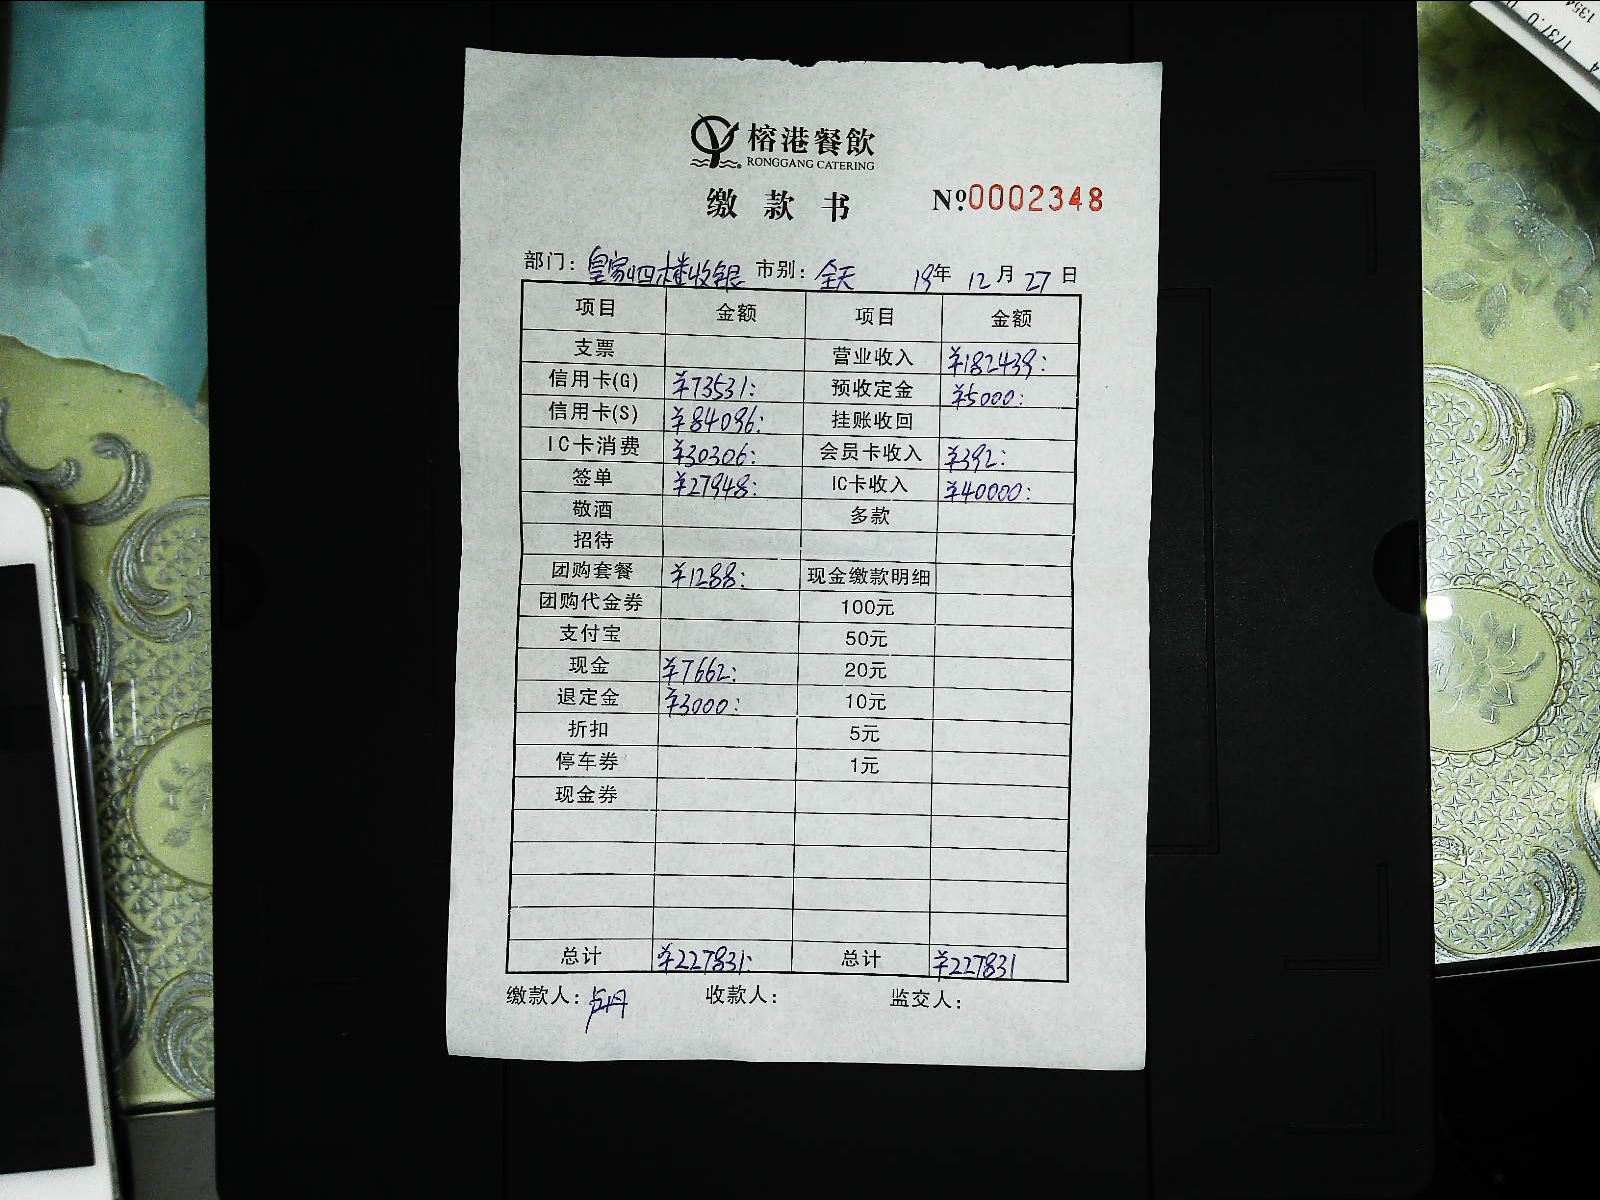 榕港餐飲
RONGGANG CATERING
缴款书 №0002348
部门：皇家四楼收银 市别：全天 19年 12月 27日
项目 金额 项目 金额
支票 营业收入 ¥182439:
信用卡(G) ¥73531: 预收定金 ¥5000:
信用卡(S) ¥84096: 挂账收回
IC卡消费 ¥30306: 会员卡收入 ¥392:
签单 ¥27948: IC卡收入 ¥40000:
敬酒 多款
招待
团购套餐 ¥1288: 现金缴款明细
团购代金券 100元
支付宝 50元
现金 ¥7662: 20元
退定金 ¥3000: 10元
折扣 5元
停车券 1元
现金券
总计 ¥227831: 总计 ¥227831
缴款人：卢丹 收款人： 监交人：